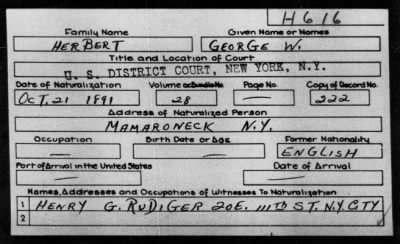 H616
Family Name Given Name or Names
HERBERT GEORGE W.
Title and Location of Court
U. S. DISTRICT COURT, NEW YORK, N.Y.
Date of Naturalization Volume or Bundle No. Page No. Copy of Record No.
OCT. 21 1891 28 — 222
Address of Naturalized Person
MAMARONECK N.Y.
Occupation Birth Date or Age Former Nationality
— — ENGLISH
Port of Arrival in the United States Date of Arrival
— —
Names, Addresses and Occupations of Witnesses To Naturalization
1 HENRY G. RUDIGER 20E. 111TH ST. N.Y. CTY
2